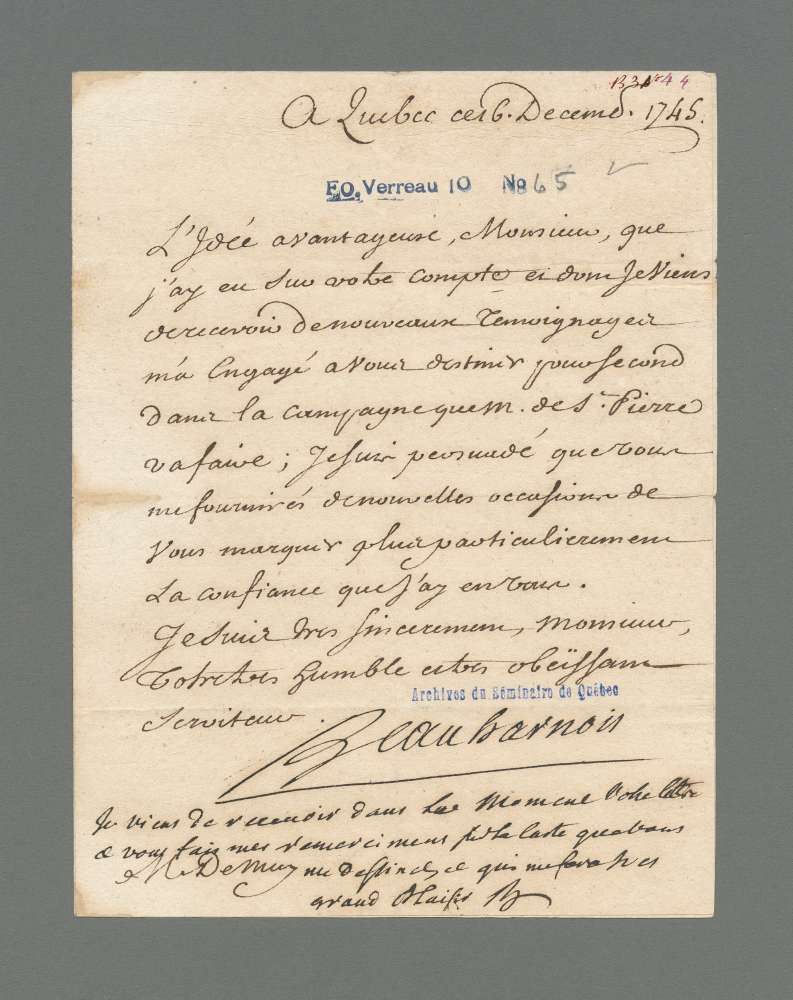 B3 N° 44
A Quebec ce 16. Decemb. 1745.
F.O. Verreau 10 No 65
L'Idée avantageuse, Monsieur, que
j'ay eu sur votre compte et dont Je Viens
de recevoir de nouveaux Temoignages
m'a Engagé a vous destiner pour second
dans la campagne que M. de St. Pierre
va faire; Je suis persuadé que vous
me fournirés de nouvelles occasions de
Vous marquer plus particulierement
La confiance que j'ay en vous.
Je suis tres sincerement, Monsieur,
Votre tres humble et tres obeïssant
Archives du Séminaire de Québec
Serviteur.
Beauharnois
Je viens de recevoir dans le Moment Votre lettre
& vous fais mes remerciments sur la carte que vous
me destinés, ce qui me fera tres
M. De Muy
grand Plaisir B